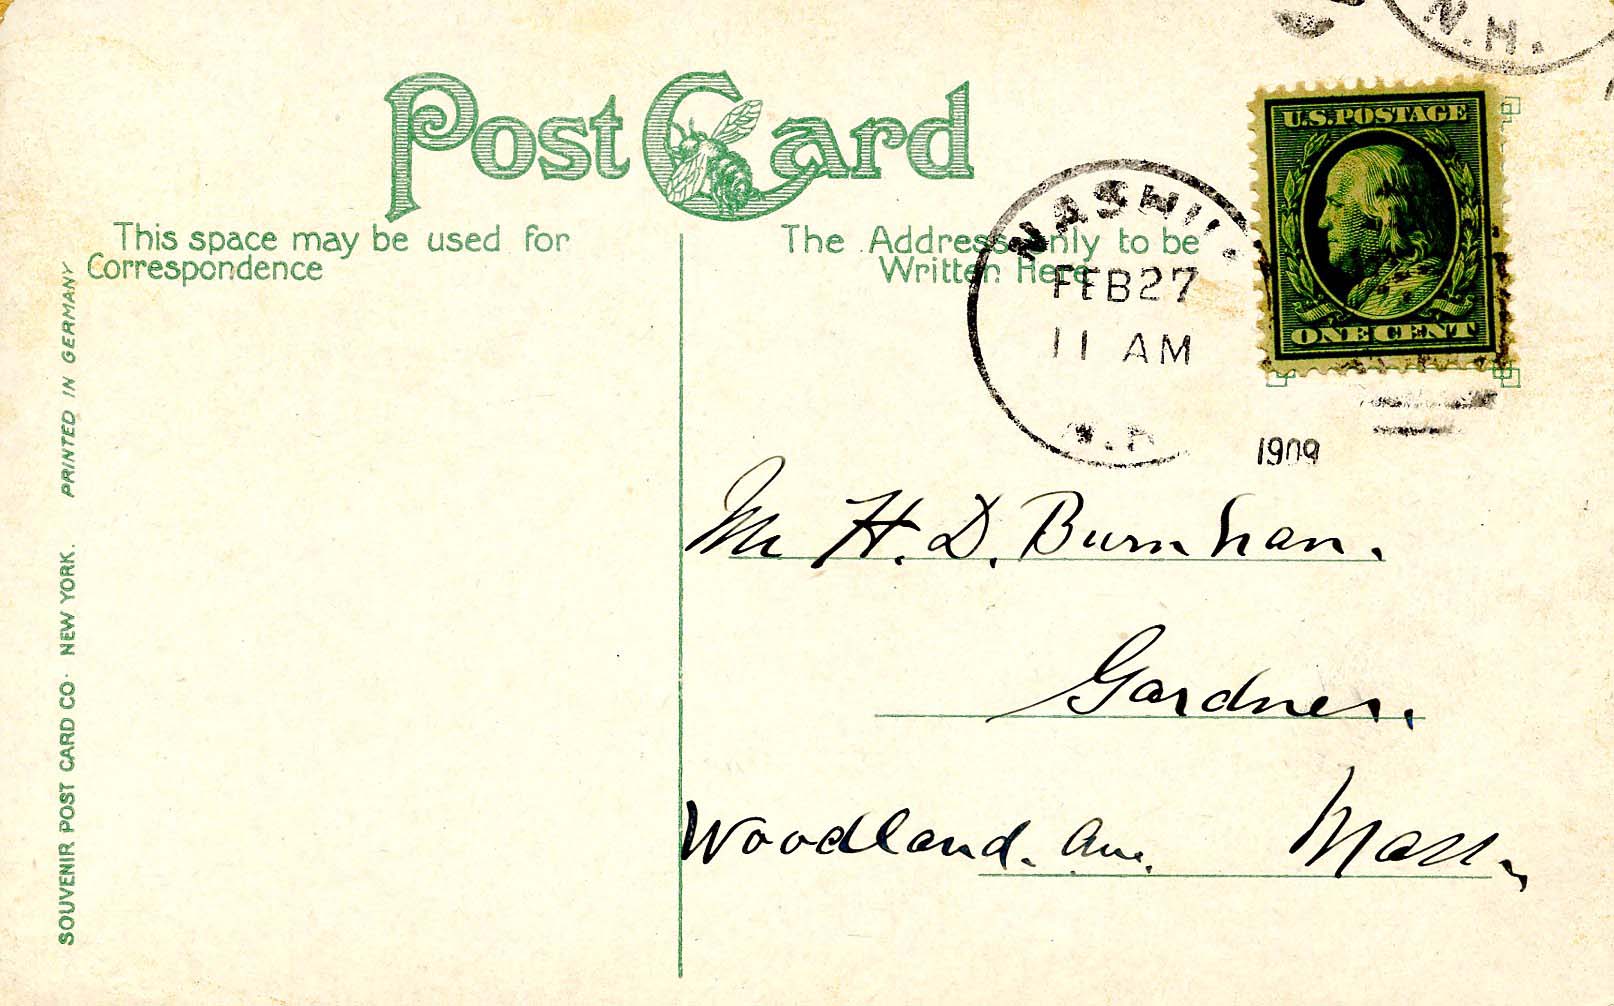 N.H.
U.S. POSTAGE
Post Card
This space may be used for
Correspondence
The Address only to be
Written Here
FEB 27
11 AM
N.H.
ONE CENT
1909
Mr H. D. Burnham.
Gardner.
Woodland. Ave. Mass.
SOUVENIR POST CARD CO. NEW YORK. PRINTED IN GERMANY